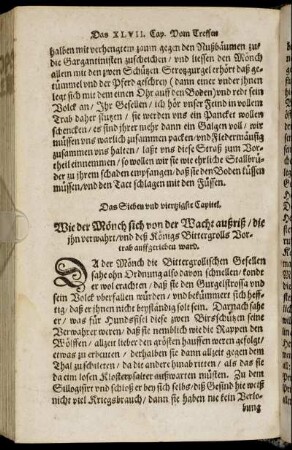 Das XLVII. Cap. Vom Treffen
halben mit verhengtem zaum gegen den Nußbäumen zu/
die Gargantinisten zuscheichen / und liessen den Mönch
allein mit den zwen Schützen. Strotzgurgel erhört daß ge-
tümmel vnd der Pferd geschrey (dann einer vnder jhnen
legt sich mit dem einen Ohr auff den Boden) vnd rede sein
Volck an / Ihr Gesellen / ich hör vnser Feind in vollem
Trab daher stutzen / sie werden vns ein Pancket wollen
schencken / es sind jhrer mehr dann ein Galgen voll / wir
müssen vns warlich zusammen packen / vnd Fledermäusig
zusammen vns halten / laßt vns diese Straß zum Vor-
theil einnemmen / so wollen wir sie wie ehrliche Stallbrü-
der zu jhrem schaden empfangen / daß sie den Boden küssen
müssen / vnd den Tact schlagen mit den Füssen.
Das Sieben vnd viertzigste Capitel.
Wie der Mönch sich von der Wacht außriß / die
jhn verwahrt / vnd deß Königs Bittergrolls Vor-
trab auffgerieben ward.
DA der Mönch die Bittergrollischen Gesellen
sahe ohn Ordnung also davon schnellen / konde
er wol erachten / daß sie den Gurgelstrossa vnd
sein Volck vberfallen würden / vnd bekümmert sich heff-
tig / daß er jhnen nicht beyständig solt sein. Darnach sahe
er / was für Hundsfißel diese zween Bierschützen seine
Verwahrer weren / daß sie nemblich wie die Rappen den
Wölffen / allzeit lieber den grösten hauffen weren gefolgt /
etwas zu erbeuten / derhalben sie dann allzeit gegen dem
Thal zu schileten / da die andere hinab ritten / als das sie
da ein losen Klosterpfalter außwarten müsten. Zu dem
Sillogisirt vnd schloß er bey sich selbs / diß Gesind hie weiß
nicht viel Kriegsbrauch / dann sie haben nie kein Verlo-
bung